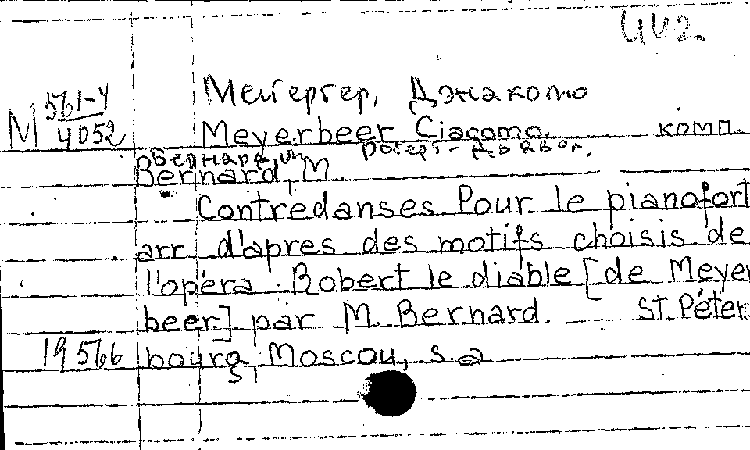 Мейербер, Джакомо
М 561-4/4052 Meyerbeer Ciacomo, комп.
Бернард, М Роберт-Дьявол.
Bernard, M.
Contredanses Pour le pianofort
arr d'apres des motifs choisis de
l'opera Robert le diable [de Meyer
beer] par M. Bernard. St. Péters
19566 bourg, Moscou, s. a